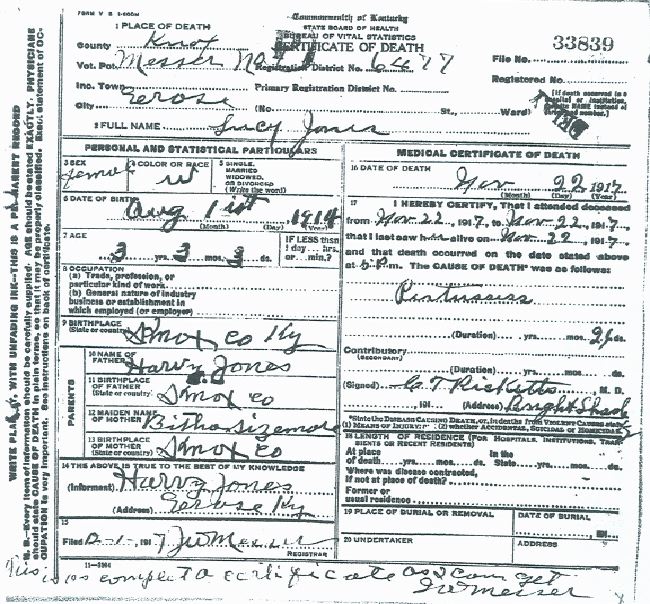 FORM V. S.
Commonwealth of Kentucky
STATE BOARD OF HEALTH
BUREAU OF VITAL STATISTICS
CERTIFICATE OF DEATH
1 PLACE OF DEATH
County Knox
File No. 33839
Vot. Pct. Messer No Registration District No. 6477
Registered No.
Inc. Town Primary Registration District No.
City Gerose (No. St., Ward)
[If death occurred in a hospital or institution, give its NAME instead of street and number.]
2 FULL NAME Lucy Jones
PERSONAL AND STATISTICAL PARTICULARS
3 SEX Female
4 COLOR OR RACE W
5 SINGLE, MARRIED WIDOWED, OR DIVORCED (Write the word)
6 DATE OF BIRTH Aug 1st 1914
(Month) (Day) (Year)
7 AGE 3 yrs. 3 mos. 3 ds.
IF LESS than 1 day....hrs. or....min.?
8 OCCUPATION
(a) Trade, profession, or
particular kind of work
(b) General nature of industry
business or establishment in
which employed (or employer)
9 BIRTHPLACE
(State or country) Knox Co Ky
PARENTS
10 NAME OF FATHER Harvy Jones
11 BIRTHPLACE OF FATHER
(State or country) Knox Co
12 MAIDEN NAME OF MOTHER Bitha Sizemore
13 BIRTHPLACE OF MOTHER
(State or country) Knox Co
14 THE ABOVE IS TRUE TO THE BEST OF MY KNOWLEDGE
(Informant) Harvy Jones
(Address) Gerose Ky
15
Filed 12-1-, 1917 J W Messer
REGISTRAR
MEDICAL CERTIFICATE OF DEATH
16 DATE OF DEATH
Nov 22 1917
(Month) (Day) (Year)
17 I HEREBY CERTIFY, That I attended deceased
from Nov. 22, 1917, to Nov. 22, 1917,
that I last saw her alive on Nov. 22, 1917,
and that death occurred on the date stated above
at 5 P.m. The CAUSE OF DEATH* was as follows:
Pertussis
(Duration) yrs. mos. ds.
Contributory
(SECONDARY)
(Duration) yrs. mos. ds.
(Signed) C. T. Ricketts, M. D.
191 (Address) Bright Shade
*State the DISEASE CAUSING DEATH, or, in deaths from VIOLENT CAUSES state (1) MEANS OF INJURY; and (2) whether ACCIDENTAL, SUICIDAL OR HOMICIDAL
18 LENGTH OF RESIDENCE (FOR HOSPITALS, INSTITUTIONS, TRANSIENTS OR RECENT RESIDENTS)
At place of death yrs. mos. ds. In the State yrs. mos. ds.
Where was disease contracted,
if not at place of death?
Former or
usual residence
19 PLACE OF BURIAL OR REMOVAL
DATE OF BURIAL
191
20 UNDERTAKER
ADDRESS
This is as complet a certificate as I can get
J W Messer
WRITE PLAINLY, WITH UNFADING INK—THIS IS A PERMANENT RECORD
N. B.—Every item of information should be carefully supplied. AGE should be stated EXACTLY. PHYSICIANS
should state CAUSE OF DEATH in plain terms, so that it may be properly classified. Exact statement of OC-
CUPATION is very important. See instructions on back of certificate.